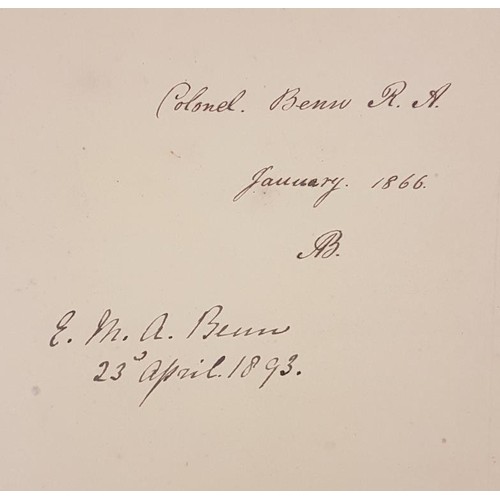 Colonel. Benn R. A.
January. 1866.
AB.
E. M. A. Benn
23d April. 1893.